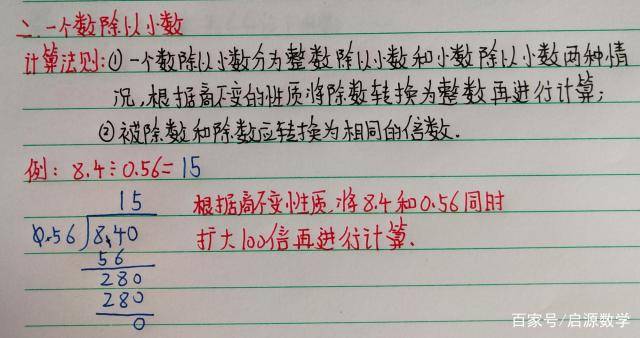 二、一个数除以小数
计算法则:①一个数除以小数分为整数除以小数和小数除以小数两种情
况,根据商不变的性质,将除数转换为整数再进行计算;
②被除数和除数应转换为相同的倍数.
例: 8.4÷0.56=15
15
根据商不变性质,将8.4和0.56同时
0.56 8.40
扩大100倍再进行计算.
56
280
280
0
百家号/启源数学